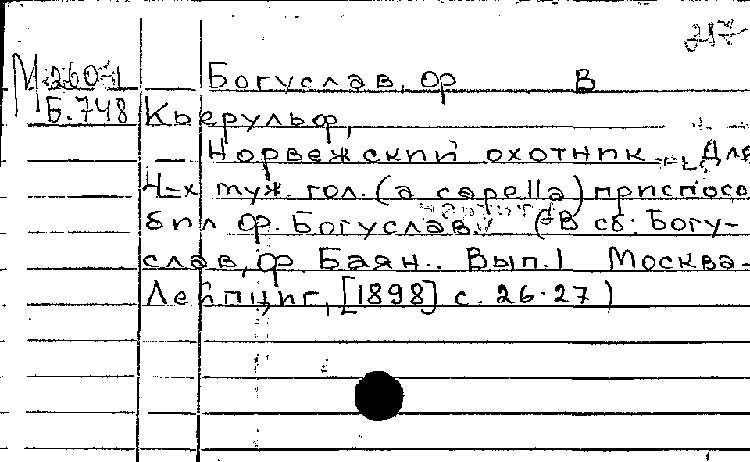 217
М 260-1 Богуслав, ор В
Б.748 Кьерульф,
Норвежский охотник. Для
4-х муж. гол. (a capella) приспосо
бил ф. Богуслав. (В сб: Богу-
слав, ф. Баян.. Вып. 1 Москва-
Лейпциг, [1898] с. 26-27)